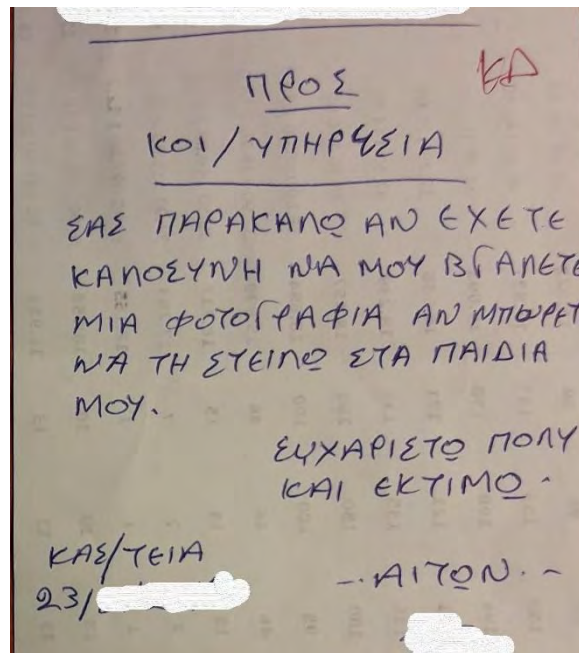 ΚΔ
ΠΡΟΣ
ΚΟΙ/ΥΠΗΡΕΣΙΑ
ΣΑΣ ΠΑΡΑΚΑΛΩ ΑΝ ΕΧΕΤΕ
ΚΑΛΟΣΥΝΗ ΝΑ ΜΟΥ ΒΓΑΛΕΤΕ
ΜΙΑ ΦΩΤΟΓΡΑΦΙΑ ΑΝ ΜΠΩΡΕΤ
ΝΑ ΤΗ ΣΤΕΙΛΩ ΣΤΑ ΠΑΙΔΙΑ
ΜΟΥ.
ΕΥΧΑΡΙΣΤΩ ΠΟΛΥ
ΚΑΙ ΕΚΤΙΜΩ.
ΚΑΣ/ΤΕΙΑ
23/
-.ΑΙΤΩΝ.-